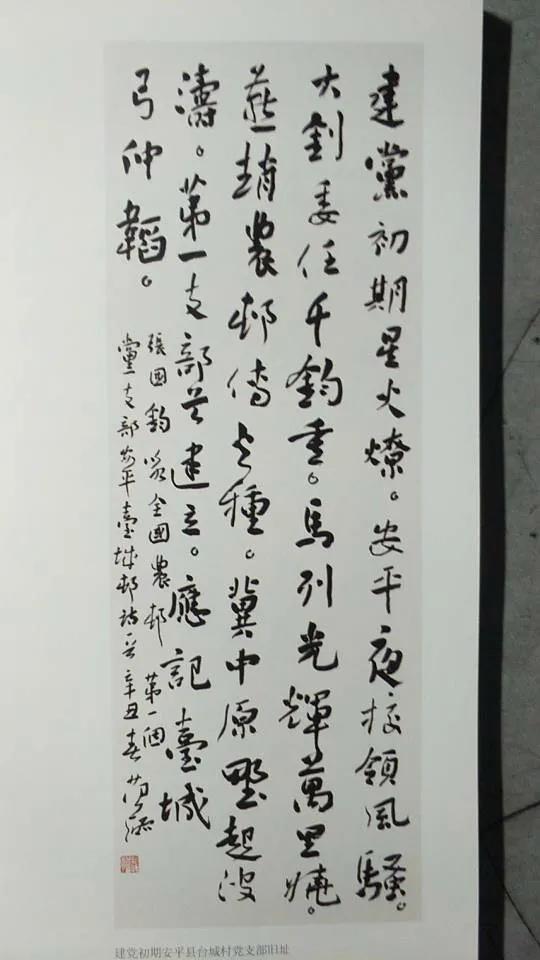 建黨初期星火燎。安平夜校領風騷。
大釗委任千鈞重。馬列光輝萬里燒。
燕趙農邨傳火種。冀中原野起波
濤。第一支部首建立。應記臺城
弓仲韜。
張國鈞詠全國農邨第一個
黨支部安平臺城邨詩首辛丑春
建党初期安平县台城村党支部旧址